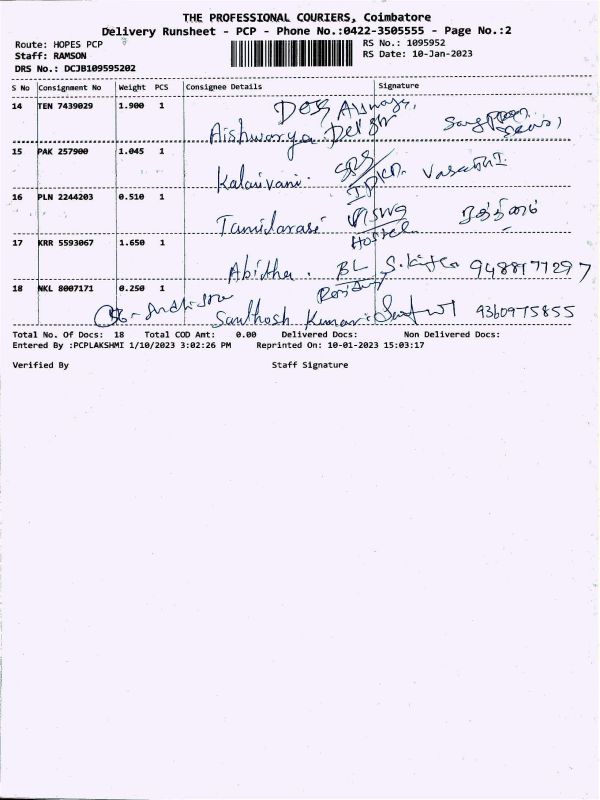 THE PROFESSIONAL COURIERS, Coimbatore
Delivery Runsheet - PCP - Phone No.:0422-3505555 - Page No.:2
Route: HOPES PCP
RS No.: 1095952
Staff: RAMSON
RS Date: 10-Jan-2023
DRS No.: DCJB109595202
S No Consignment No Weight PCS Consignee Details Signature
14 TEN 7439029 1.900 1
Aishwarya
15 PAK 257900 1.045 1
Kalaivani. Vasanthi
16 PLN 2244203 0.510 1
Tamilarasi
Hostel
17 KRR 5593067 1.650 1
Abitha. BL 9488177297
18 NKL 8007171 0.250 1
Santhosh Kumar 9360975855
Total No. Of Docs: 18 Total COD Amt: 0.00 Delivered Docs: Non Delivered Docs:
Entered By :PCPLAKSHMI 1/10/2023 3:02:26 PM Reprinted On: 10-01-2023 15:03:17
Verified By Staff Signature